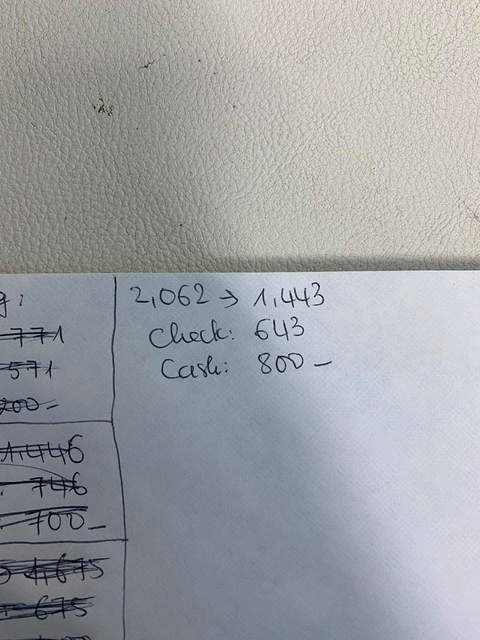 g:
771
571
200-
1,446
746
700-
1,675
675
2,062 → 1,443
Check: 643
Cash: 800 -